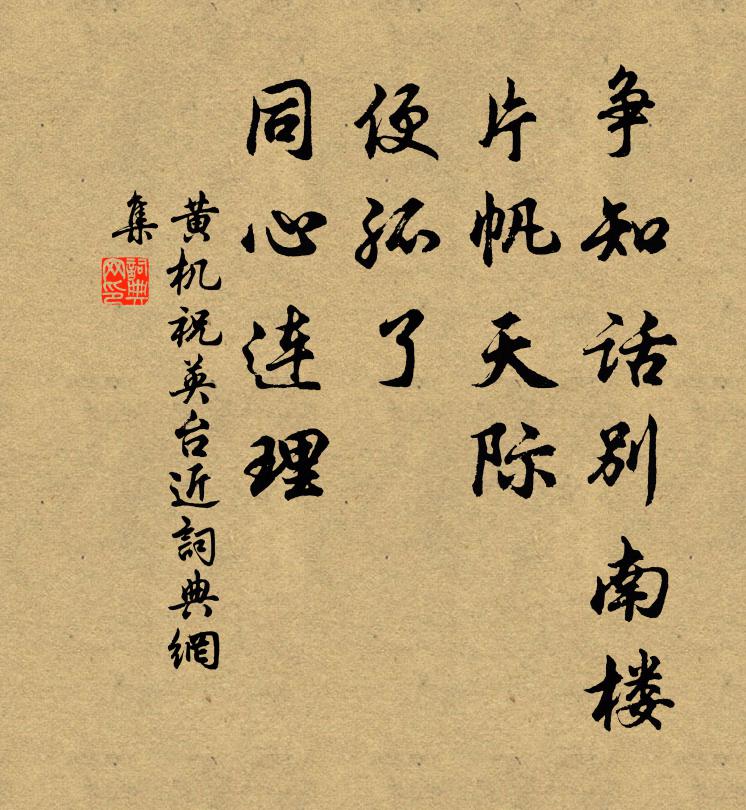 争知话别南楼
片帆天际
便孤了
同心连理
黄机祝英台近詞典網
集
詞典
网印